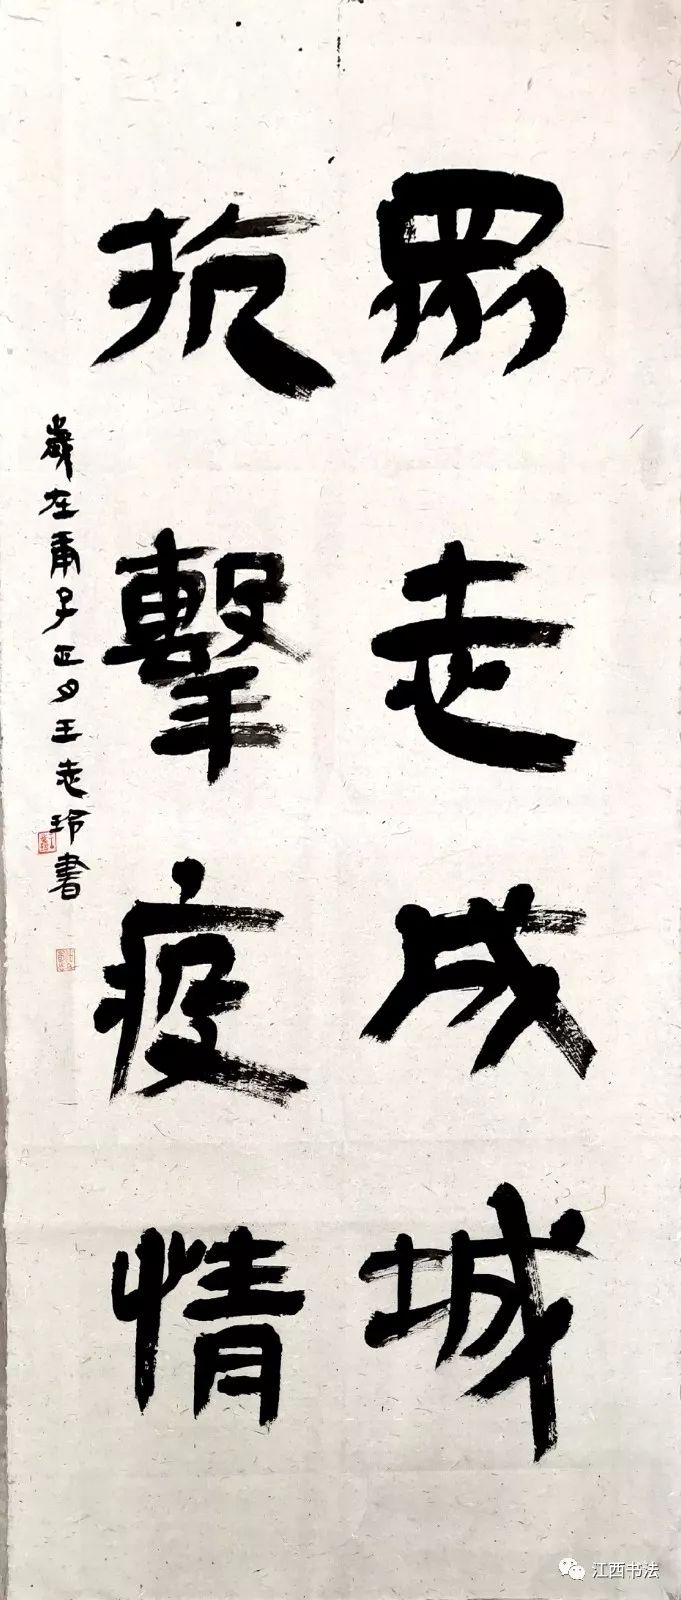 眾志成城
抗擊疫情
歲在庚子正月王志玲書
江西书法